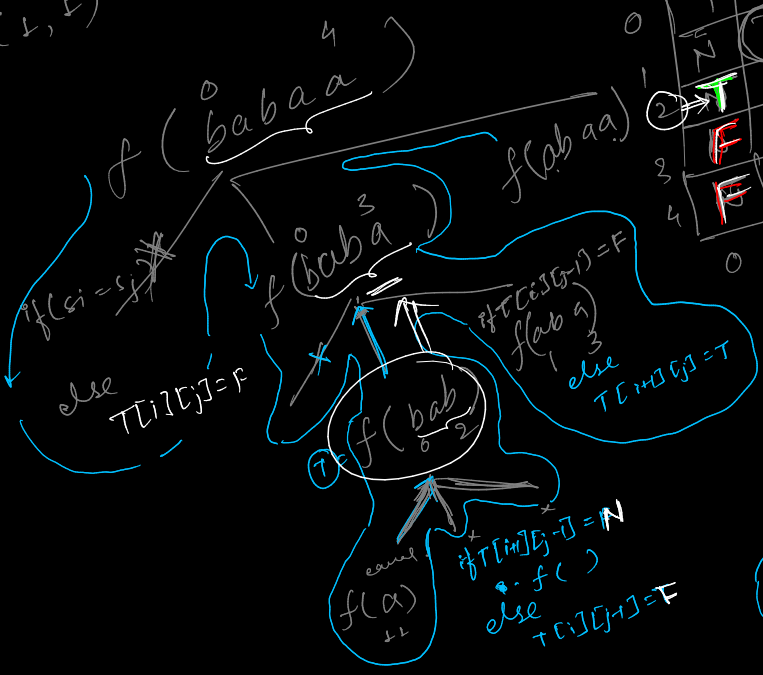 1, 1)
4
0
f(babaa)
0
1
N
2 → T
3
F
4
F
0
f(abaa)
0 3
f(baba)
if(si=sj)
else
T[i][j]=F
if T[i][j-1]=F
f(aba)
1 3
else
T[i+1][j]=T
T = f(bab)
0 2
x x
if T[i+1][j-1]=N
f( )
else
T[i][j-1]=F
f(a)
11